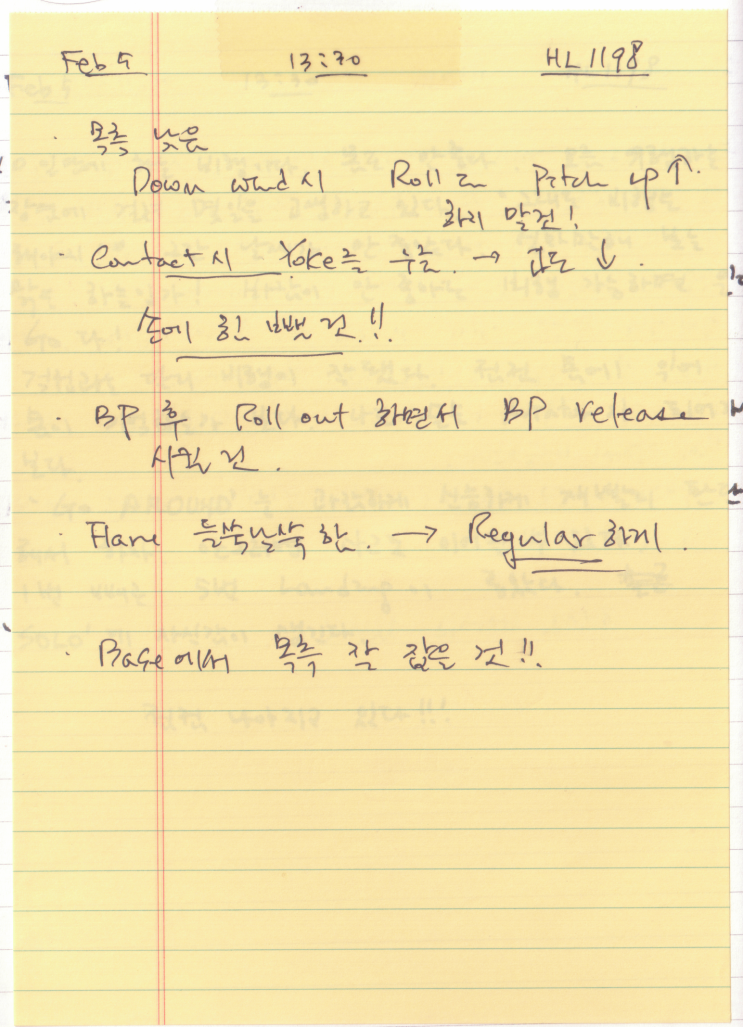 Feb 5 13:30 HL1198
· 목측 낮음
Down wind시 Roll로 Pitch up↑.
하지 말것!
· Contact시 Yoke를 누름. → 고도 ↓.
손에 힘 뺄 것.!!
· BP 후 Roll out 하면서 BP release
시킬 것.
· Flare 들쑥날쑥 함. → Regular 하게.
· Base에서 목측 잘 잡을 것!!.